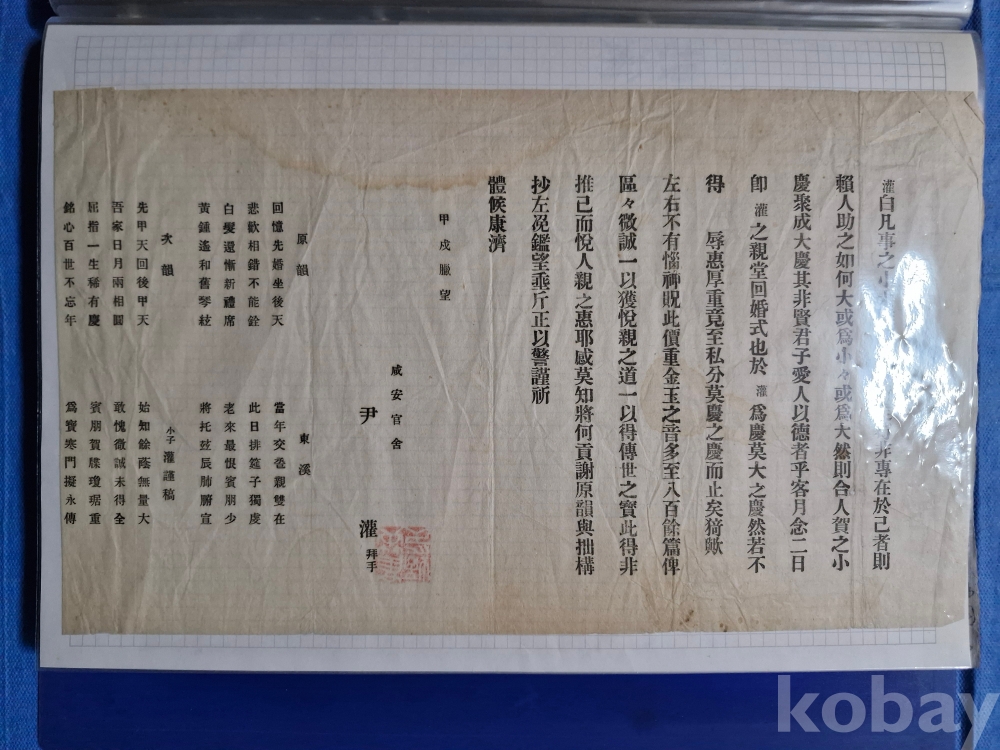 灌白凡事之小 非專在於己者則
賴人助之如何大或爲小々或爲大然則合人賀之小
慶聚成大慶其非賢君子愛人以德者乎客月念二日
卽 灌 之親堂回婚式也於 灌 爲慶莫大之慶然若不
得 辱惠厚重竟至私分莫慶之慶而止矣猗歟
左右不有惱神貺此價重金玉之音多至八百餘篇俾
區々微誠一以獲悅親之道一以得傳世之寶此得非
推己而悅人親之惠耶感莫知將何貢謝原韻與拙構
抄左凂鑑望乘斤正以警謹祈
體候康濟
甲戌臘望
咸安官舍
尹 灌 拜手
原韻 東溪
回憶先婚坐後天 當年交巹親雙在
悲歡相錯不能詮 此日排筵子獨虔
白髮還慚新禮席 老來最恨賓朋少
黃鍾遙和舊琴絃 將托玆辰肺腑宣
次韻 小子灌謹稿
先甲天回後甲天 始知餘蔭無量大
吾家日月兩相圓 敢愧微誠未得全
屈指一生稀有慶 賓朋賀牒瓊琚重
銘心百世不忘年 爲寶寒門擬永傳
kobay